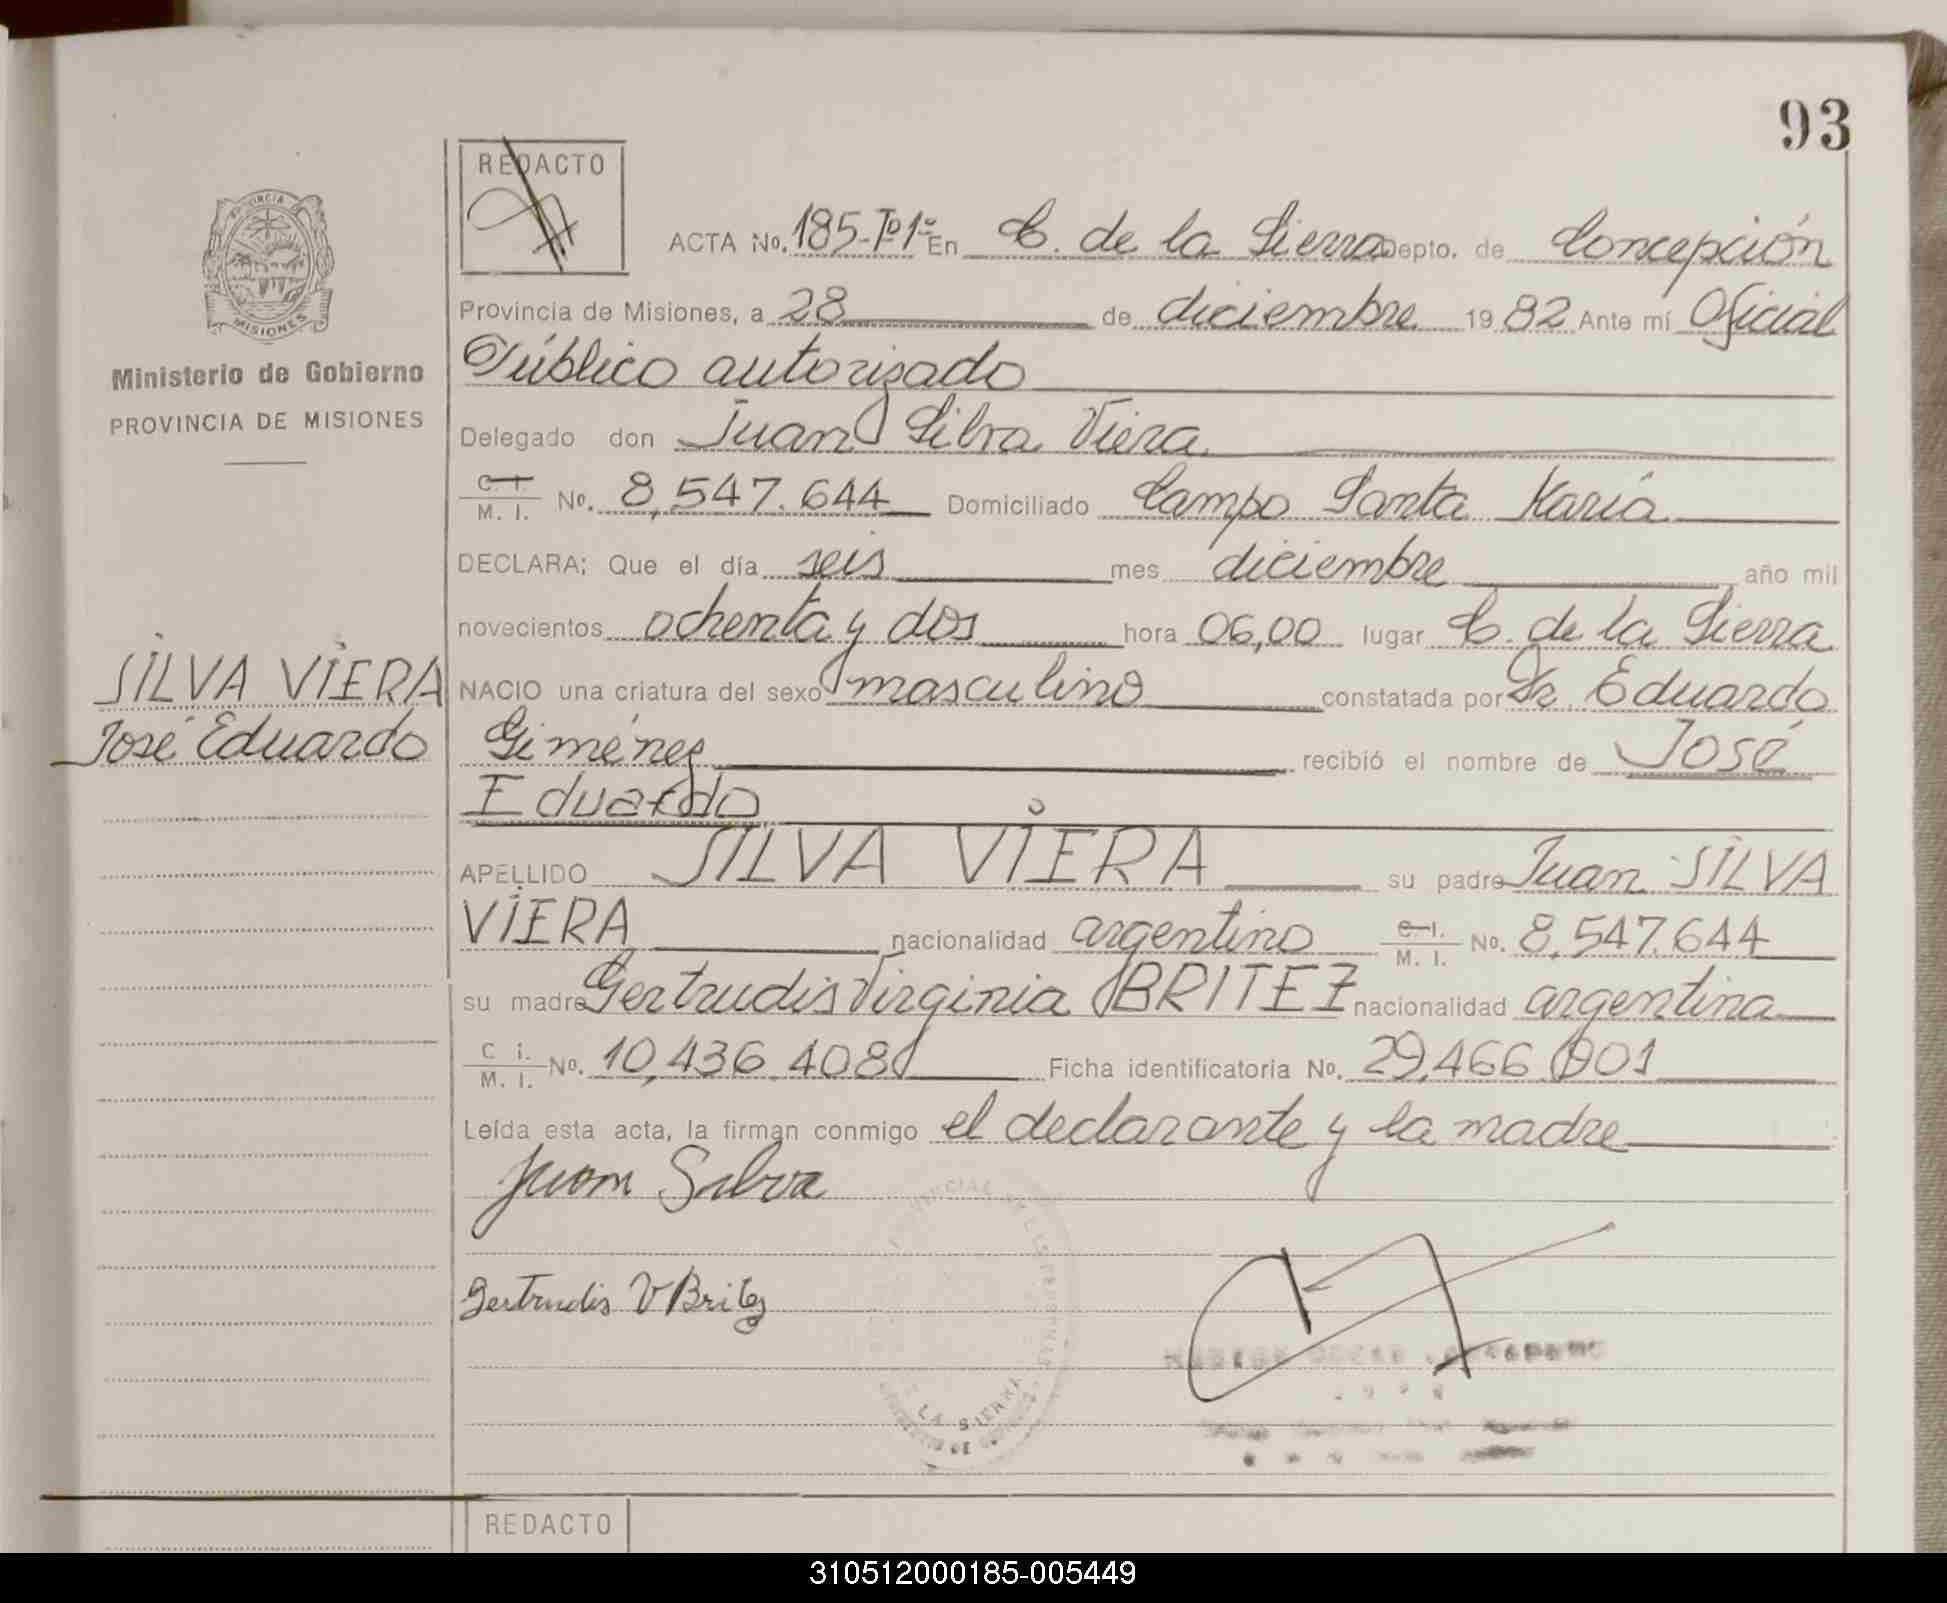 93
REDACTO
ACTA No. 185-Tº1º En C. de la Sierra Depto. de Concepción
Provincia de Misiones, a 28 de diciembre 1982 Ante mí Oficial
Público autorizado
Delegado don Juan Silva Viera
C. I. M. I. No. 8,547.644 Domiciliado Campo Santa María
DECLARA: Que el día seis mes diciembre año mil
novecientos ochenta y dos hora 06,00 lugar C. de la Sierra
NACIO una criatura del sexo masculino constatada por Dr. Eduardo
Giménez recibió el nombre de José
Eduardo
APELLIDO SILVA VIERA su padre Juan SILVA
VIERA nacionalidad argentino C. I. M. I. No. 8,547.644
su madre Gertrudis Virginia BRITEZ nacionalidad argentina
C. I. M. I. No. 10,436.408 Ficha identificatoria No. 29,466.901
Leída esta acta, la firman conmigo el declarante y la madre
Juan Silva
Gertrudis V Britez
LA SIERRA
MISIONES
Ministerio de Gobierno
PROVINCIA DE MISIONES
SILVA VIERA
José Eduardo
REDACTO
310512000185-005449